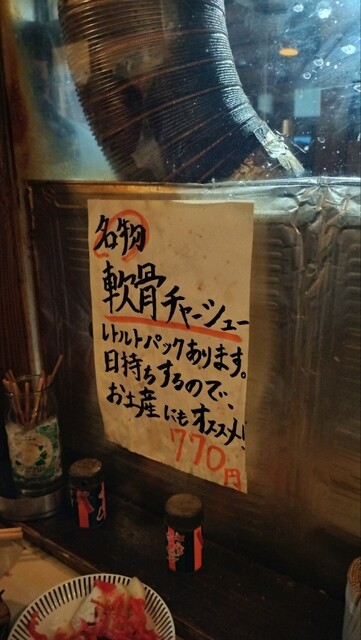 名物
軟骨チャーシュー
レトルトパックあります。
日持ちするので、
お土産にもオススメ!
770円